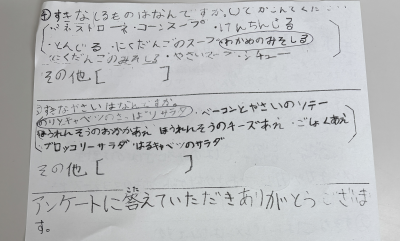 ④すきなしるものはなんですか。○してかこんでください
ミネストローネ・コーンスープ・けんちんじる
・とんじる にくだんごのスープ わかめのみそしる
にくだんごのみそしる・やさいスープ・シチュー
その他[ ]
すきなやさいはなんですか。
キャベツのさっぱりサラダ・ベーコンとやさいのソテー
ほうれんそうのおかかあえ ほうれんそうのチーズあえ・ごしょくあえ
ブロッコリーサラダ はるキャベツのサラダ
その他[ ]
アンケートに答えていただきありがとうございま
す。